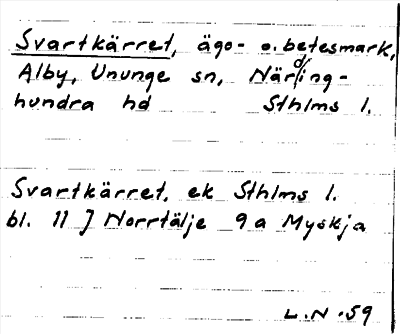 Svartkärret, ägo- o. betesmark,
Alby, Ununge sn, Närding-
hundra hd Sthlms l.
Svartkärret, ek Sthlms l.
bl. 11 J Norrtälje 9a Myskja
L.N. 59